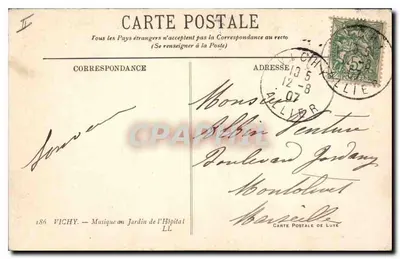 II
CARTE POSTALE
Tous les Pays étrangers n'acceptent pas la Correspondance au recto
(Se renseigner à la Poste)
CORRESPONDANCE
ADRESSE
VICHY
10 5
12 - 8
07
ALLIER
Monsieur
Albin Venture
Boulevard Jourdan
Montolivet
Marseille
Souvenir
186 VICHY. - Musique au Jardin de l'Hôpital
LL
CARTE POSTALE DE LUXE